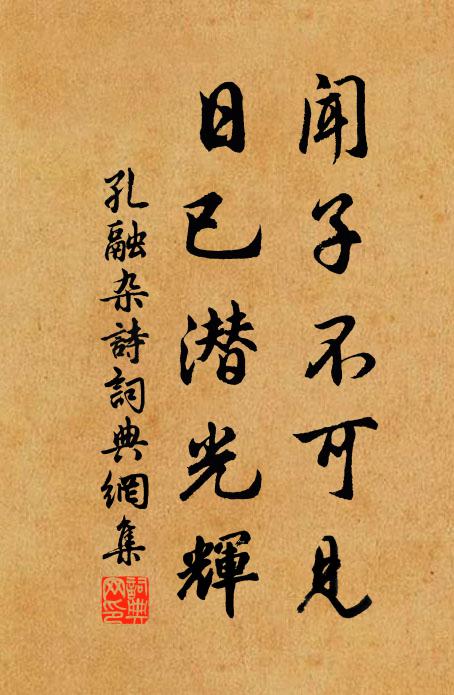 闻子不可見
日已潜光輝
孔融杂詩詞典網集
詞典网印